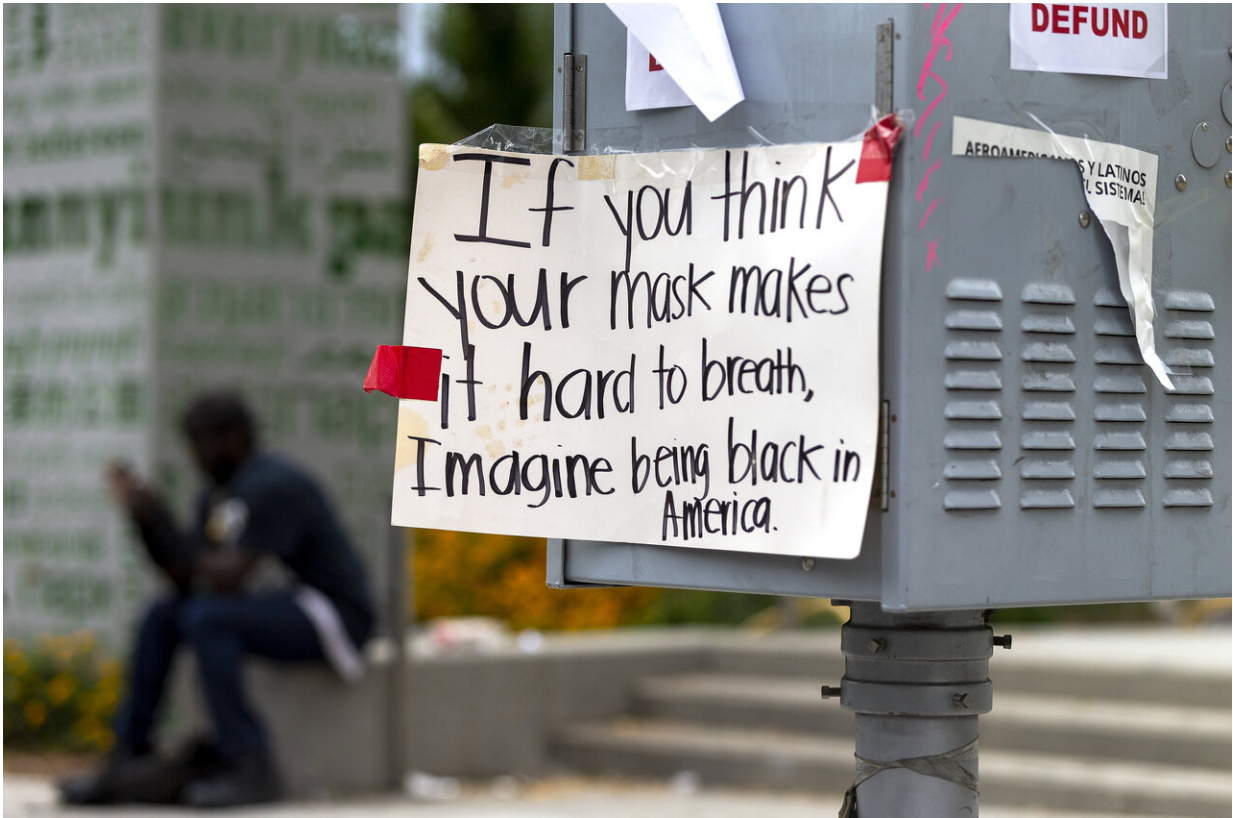 DEFUND
AFROAMERICANOS Y LATINOS
EL SISTEMA!
If you think
your mask makes
it hard to breath,
Imagine being black in
America.